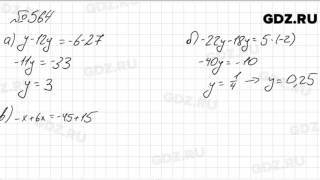 №564
GDZ.RU
а) y-12y=-6-27
-11y=-33
y=3
б) -22y-18y=5·(-2)
-40y=-10
y=1/4 → y=0,25
в) -x+6x=-45+15